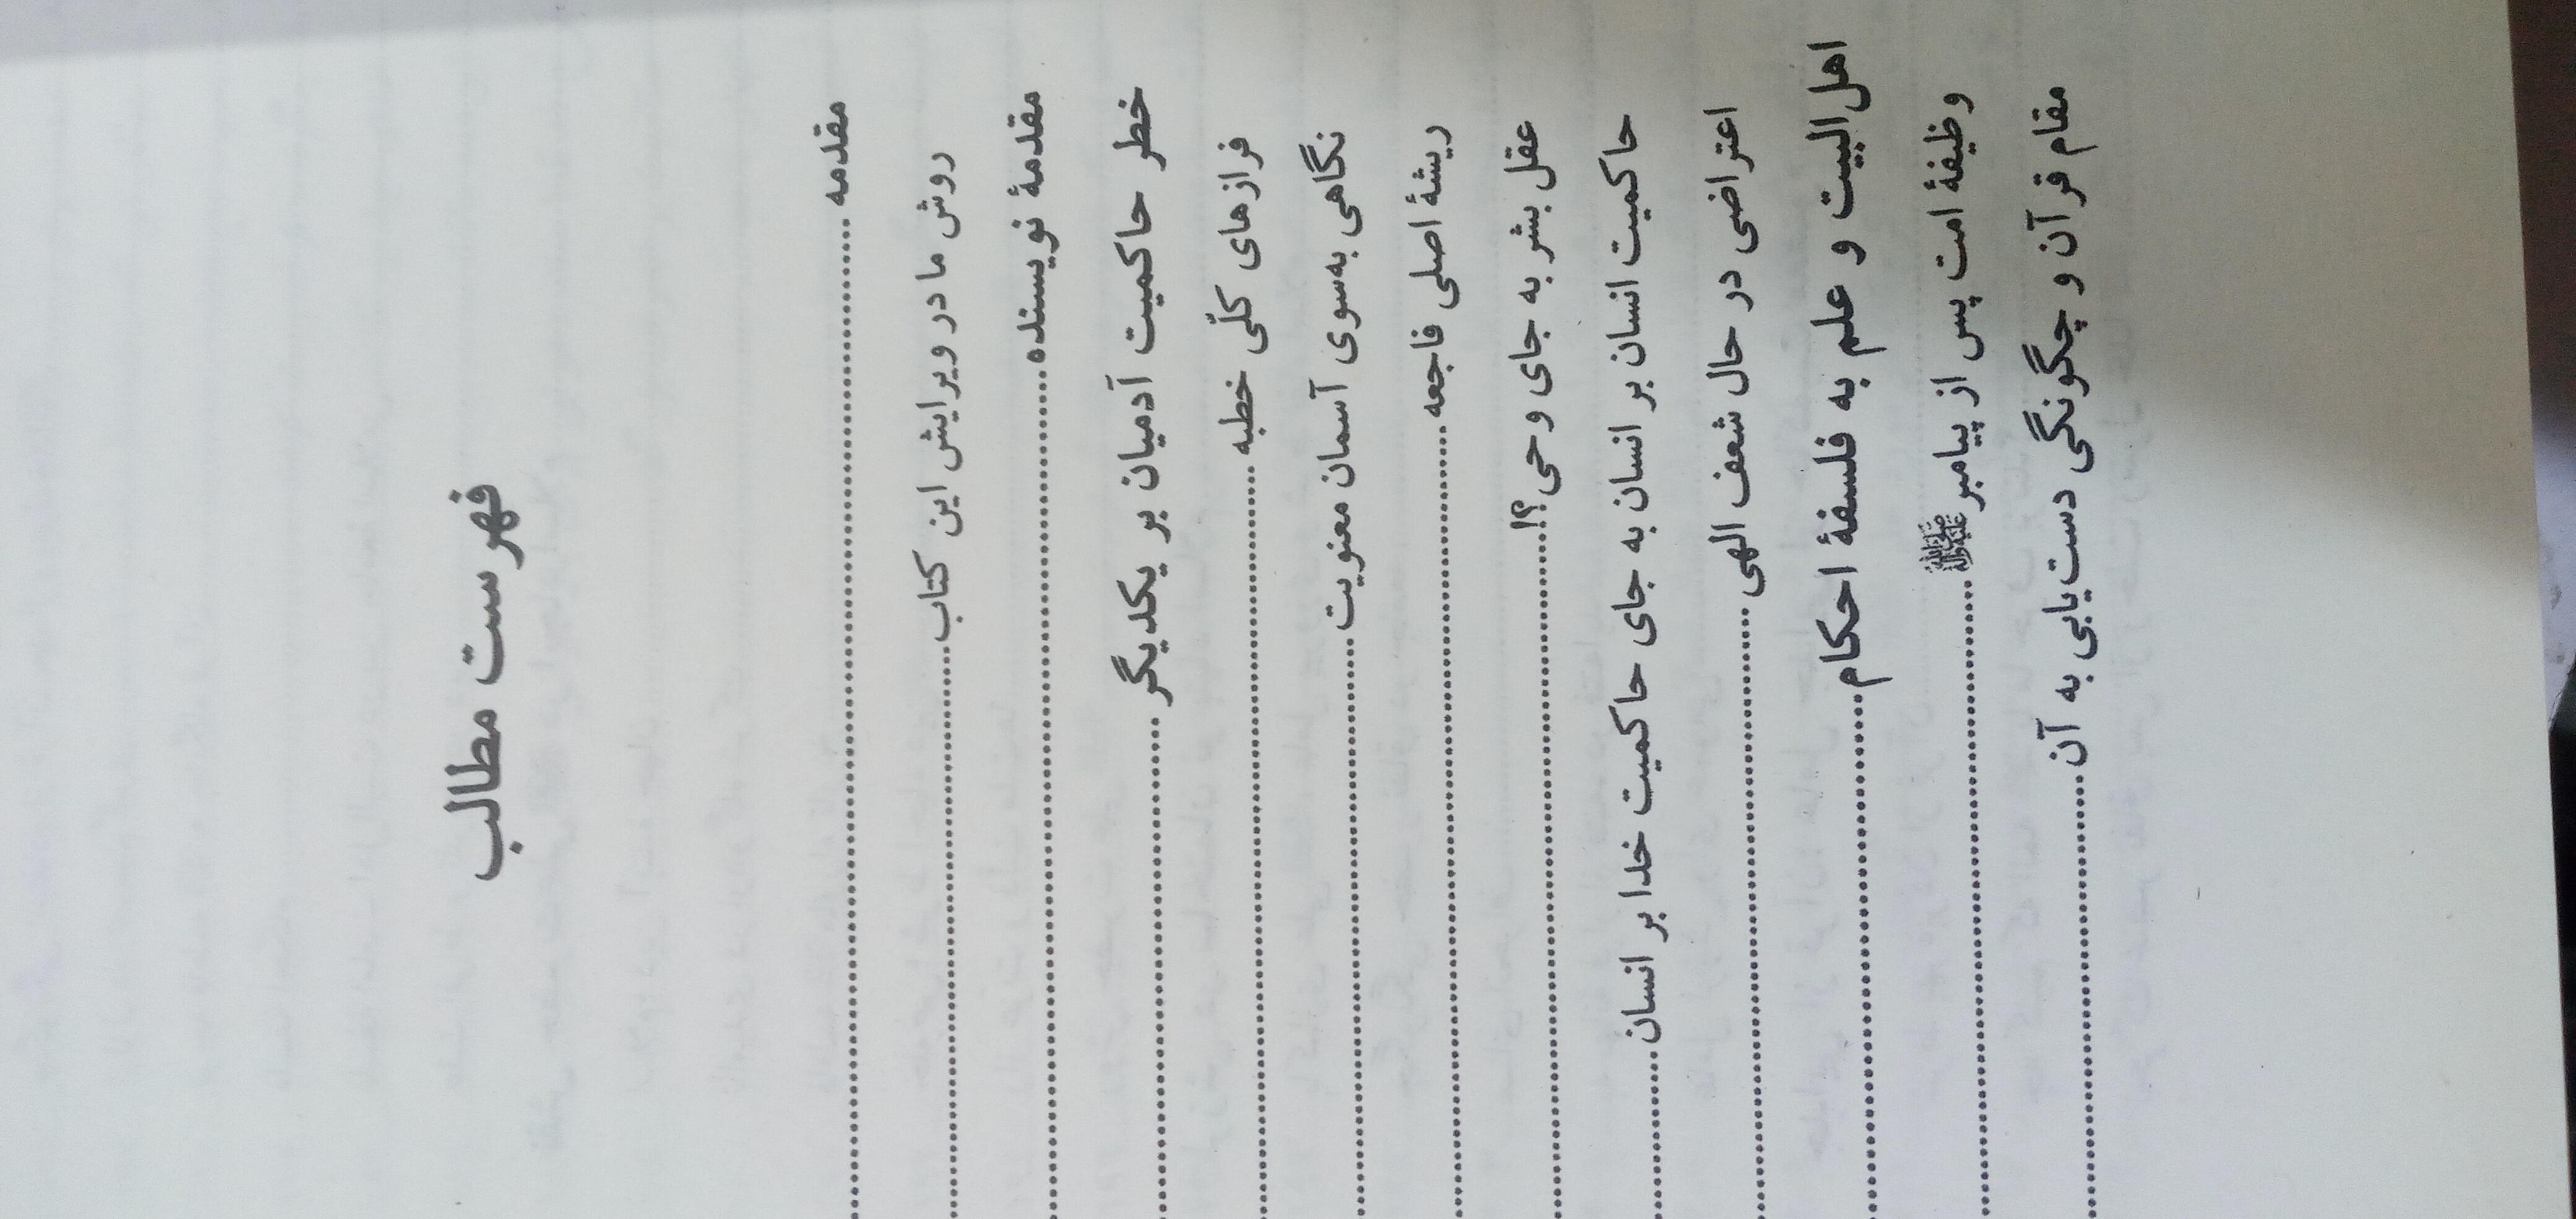 فهرست مطالب
مقدمه
روش ما در ویرایش این کتاب
مقدمهٔ نویسنده
خطر حاکمیت آدمیان بر یکدیگر
فرازهای کلّی خطبه
نگاهی به‌سوی آسمان معنویت
ریشهٔ اصلی فاجعه
عقل بشر به جای وحی؟!
حاکمیت انسان بر انسان به جای حاکمیت خدا بر انسان
اعتراضی در حال شعف الهی
اهل‌البیت و علم به فلسفهٔ احکام
وظیفهٔ امت پس از پیامبر ﷺ
مقام قرآن و چگونگی دست‌یابی به آن